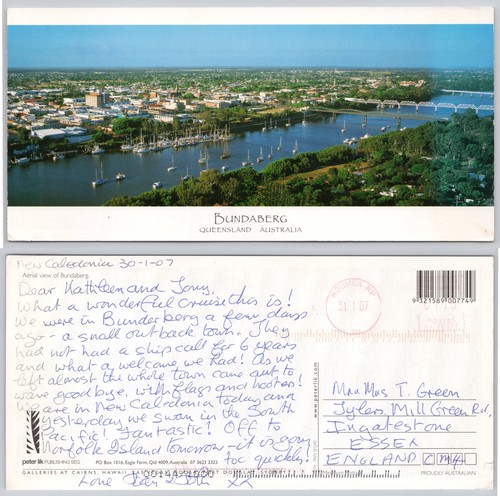 BUNDABERG
QUEENSLAND AUSTRALIA
New Caledonia 30-1-07
Aerial view of Bundaberg.
Dear Kathleen and Tony,
What a wonderful cruise this is!
We were in Bunderberg a few days
ago - a small outback town. They
had not had a ship call for 6 years
and what a welcome we had! As we
left almost the whole town came out to
wave good bye, with flags and hooters!
We are in New Caledonia today and
yesterday we swam in the South
Pacific! Fantastic! Off to
Norfolk Island tomorrow - it is going
too quickly!
Love
XX
31 1 07
9 321589 007749
www.peterlik.com
Mr and Mrs T. Green
Tylers, Mill Green Rd,
Ingatestone
ESSEX
ENGLAND CM4
peter lik PUBLISHING
PO BOX 1016, Eagle Farm, Qld 4009, Australia
GALLERIES AT CAIRNS, HAWAII,
PROUDLY AUSTRALIAN